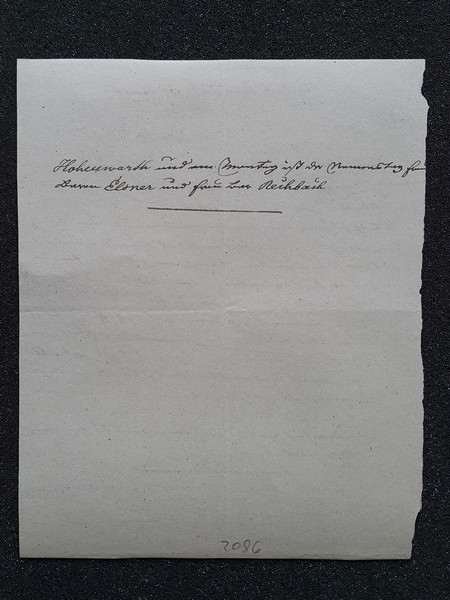 Hohenwarth und am Montag ist der Namenstag für
Baron Elsner und für Rechbach
2086